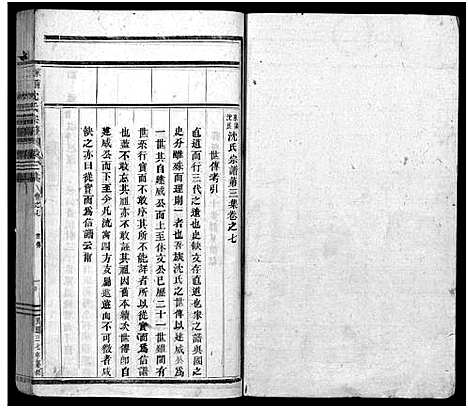 沈氏宗譜第三集卷之七
世傳考引
直道而行三代之遺也史缺文存直道也家譜與國之
史分雖殊而理則一者也吾族沈氏之世傳以建威公為
一世其自建威公而上至休文公已歷二十一世雖間有
世系行實而不敢序其所不能詳者所以從實而為信譜
也並不敢忘其祖亦不敢誣其祖因舊本續次世傳即自
建威公而下至今凡流寓四方支屬遙遠而不可考者咸
缺之亦曰從實而為信譜云爾